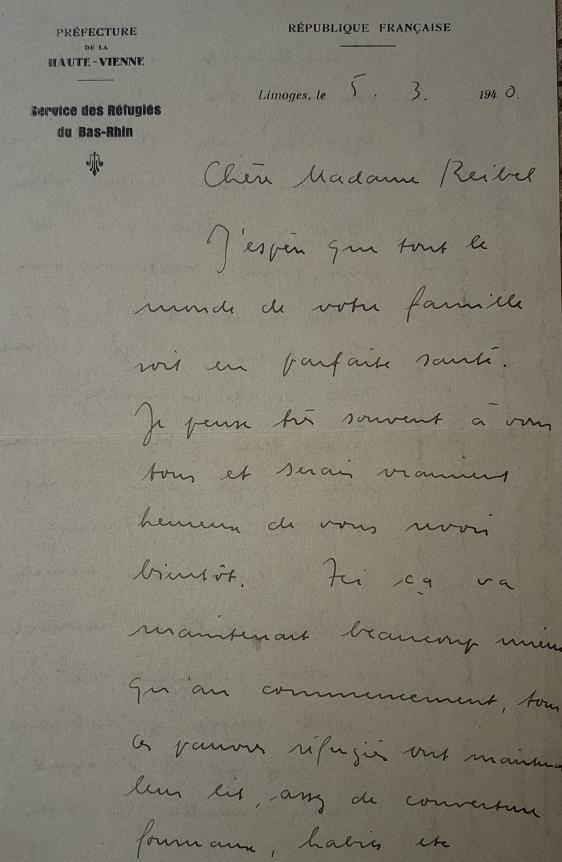 PRÉFECTURE
DE LA
HAUTE-VIENNE
Service des Réfugiés
du Bas-Rhin
RÉPUBLIQUE FRANÇAISE
Limoges, le 5. 3. 1940.
Chère Madame Reibel
J'espère que tout le
monde de votre famille
soit en parfaite santé.
Je pense très souvent à vous
tous et serais vraiment
heureux de vous revoir
bientôt. Ici ça va
maintenant beaucoup mieux
qu'au commencement, tous
ces pauvres réfugiés ont maintenant
leur lit, assez de couverture
fourneaux, habits etc